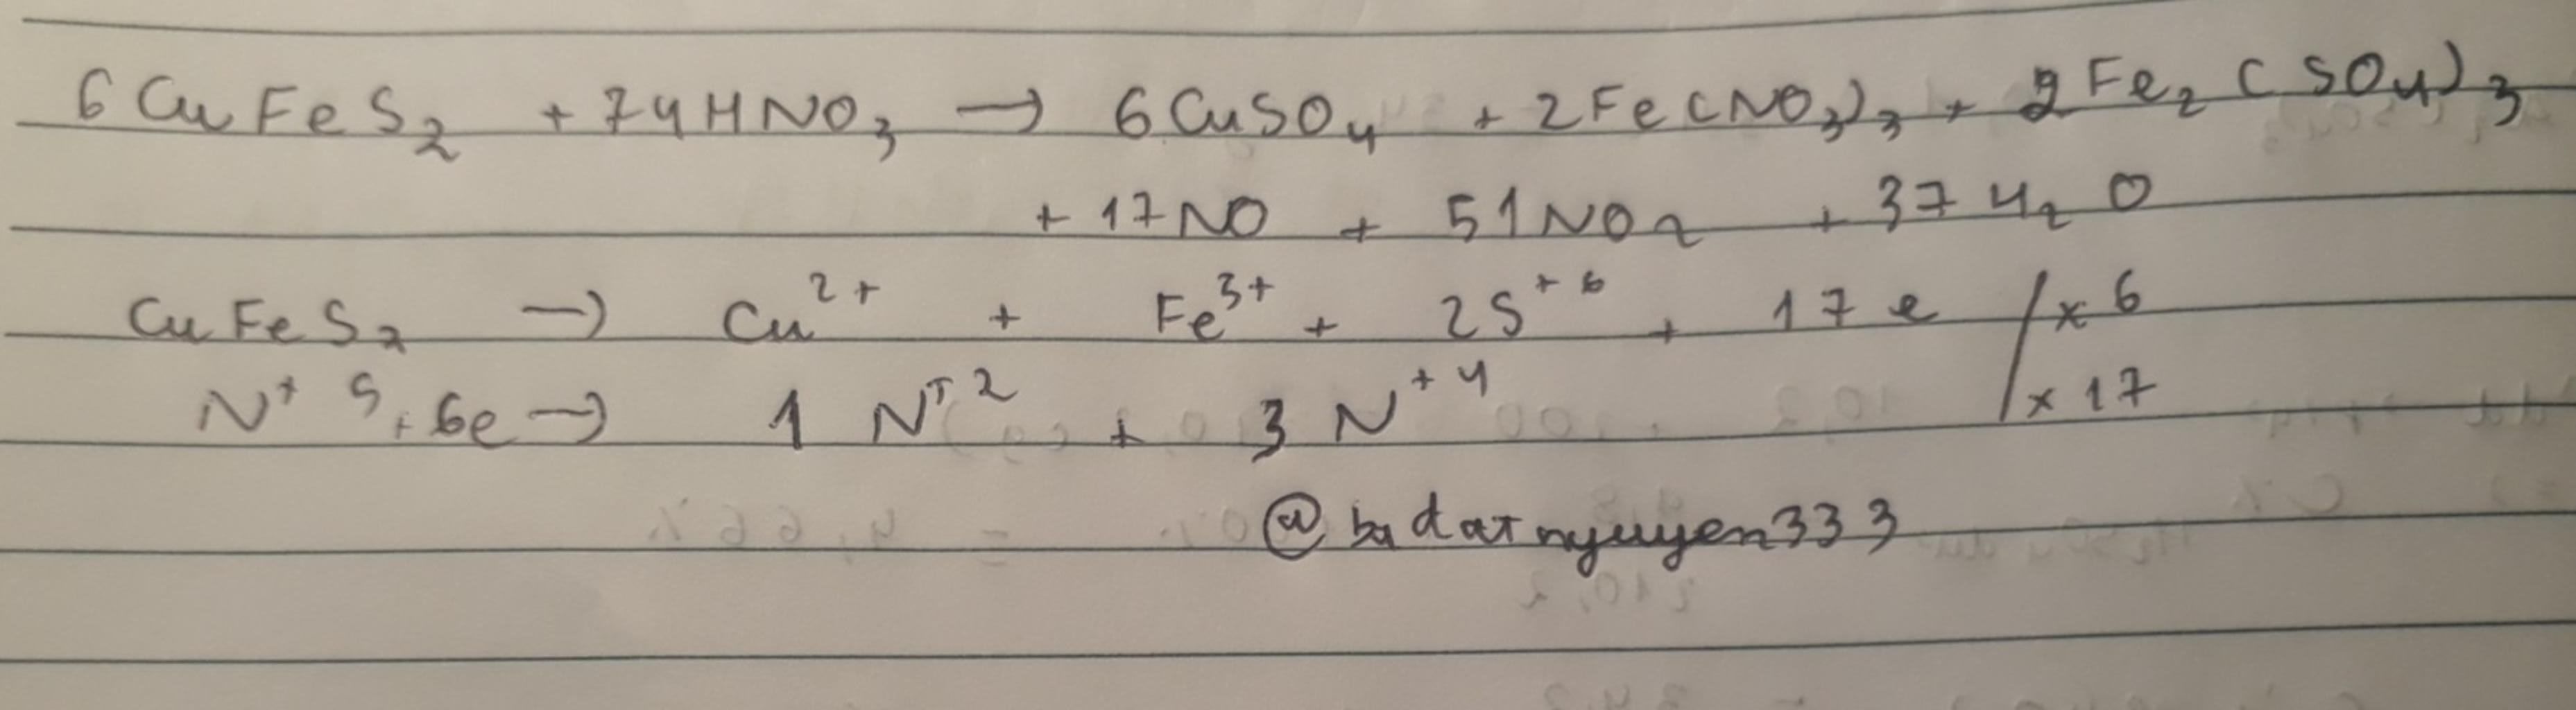 6CuFeS₂ + 74HNO₃ → 6CuSO₄ + 2Fe(NO₃)₃ + 2Fe₂(SO₄)₃
+ 17NO + 51NO₂ + 37H₂O
CuFeS₂ → Cu²⁺ + Fe³⁺ + 2S⁺⁶ + 17e /x6
N⁺⁵ + 6e → 1N⁺² + 3N⁺⁴ /x17
@badatnguyen333